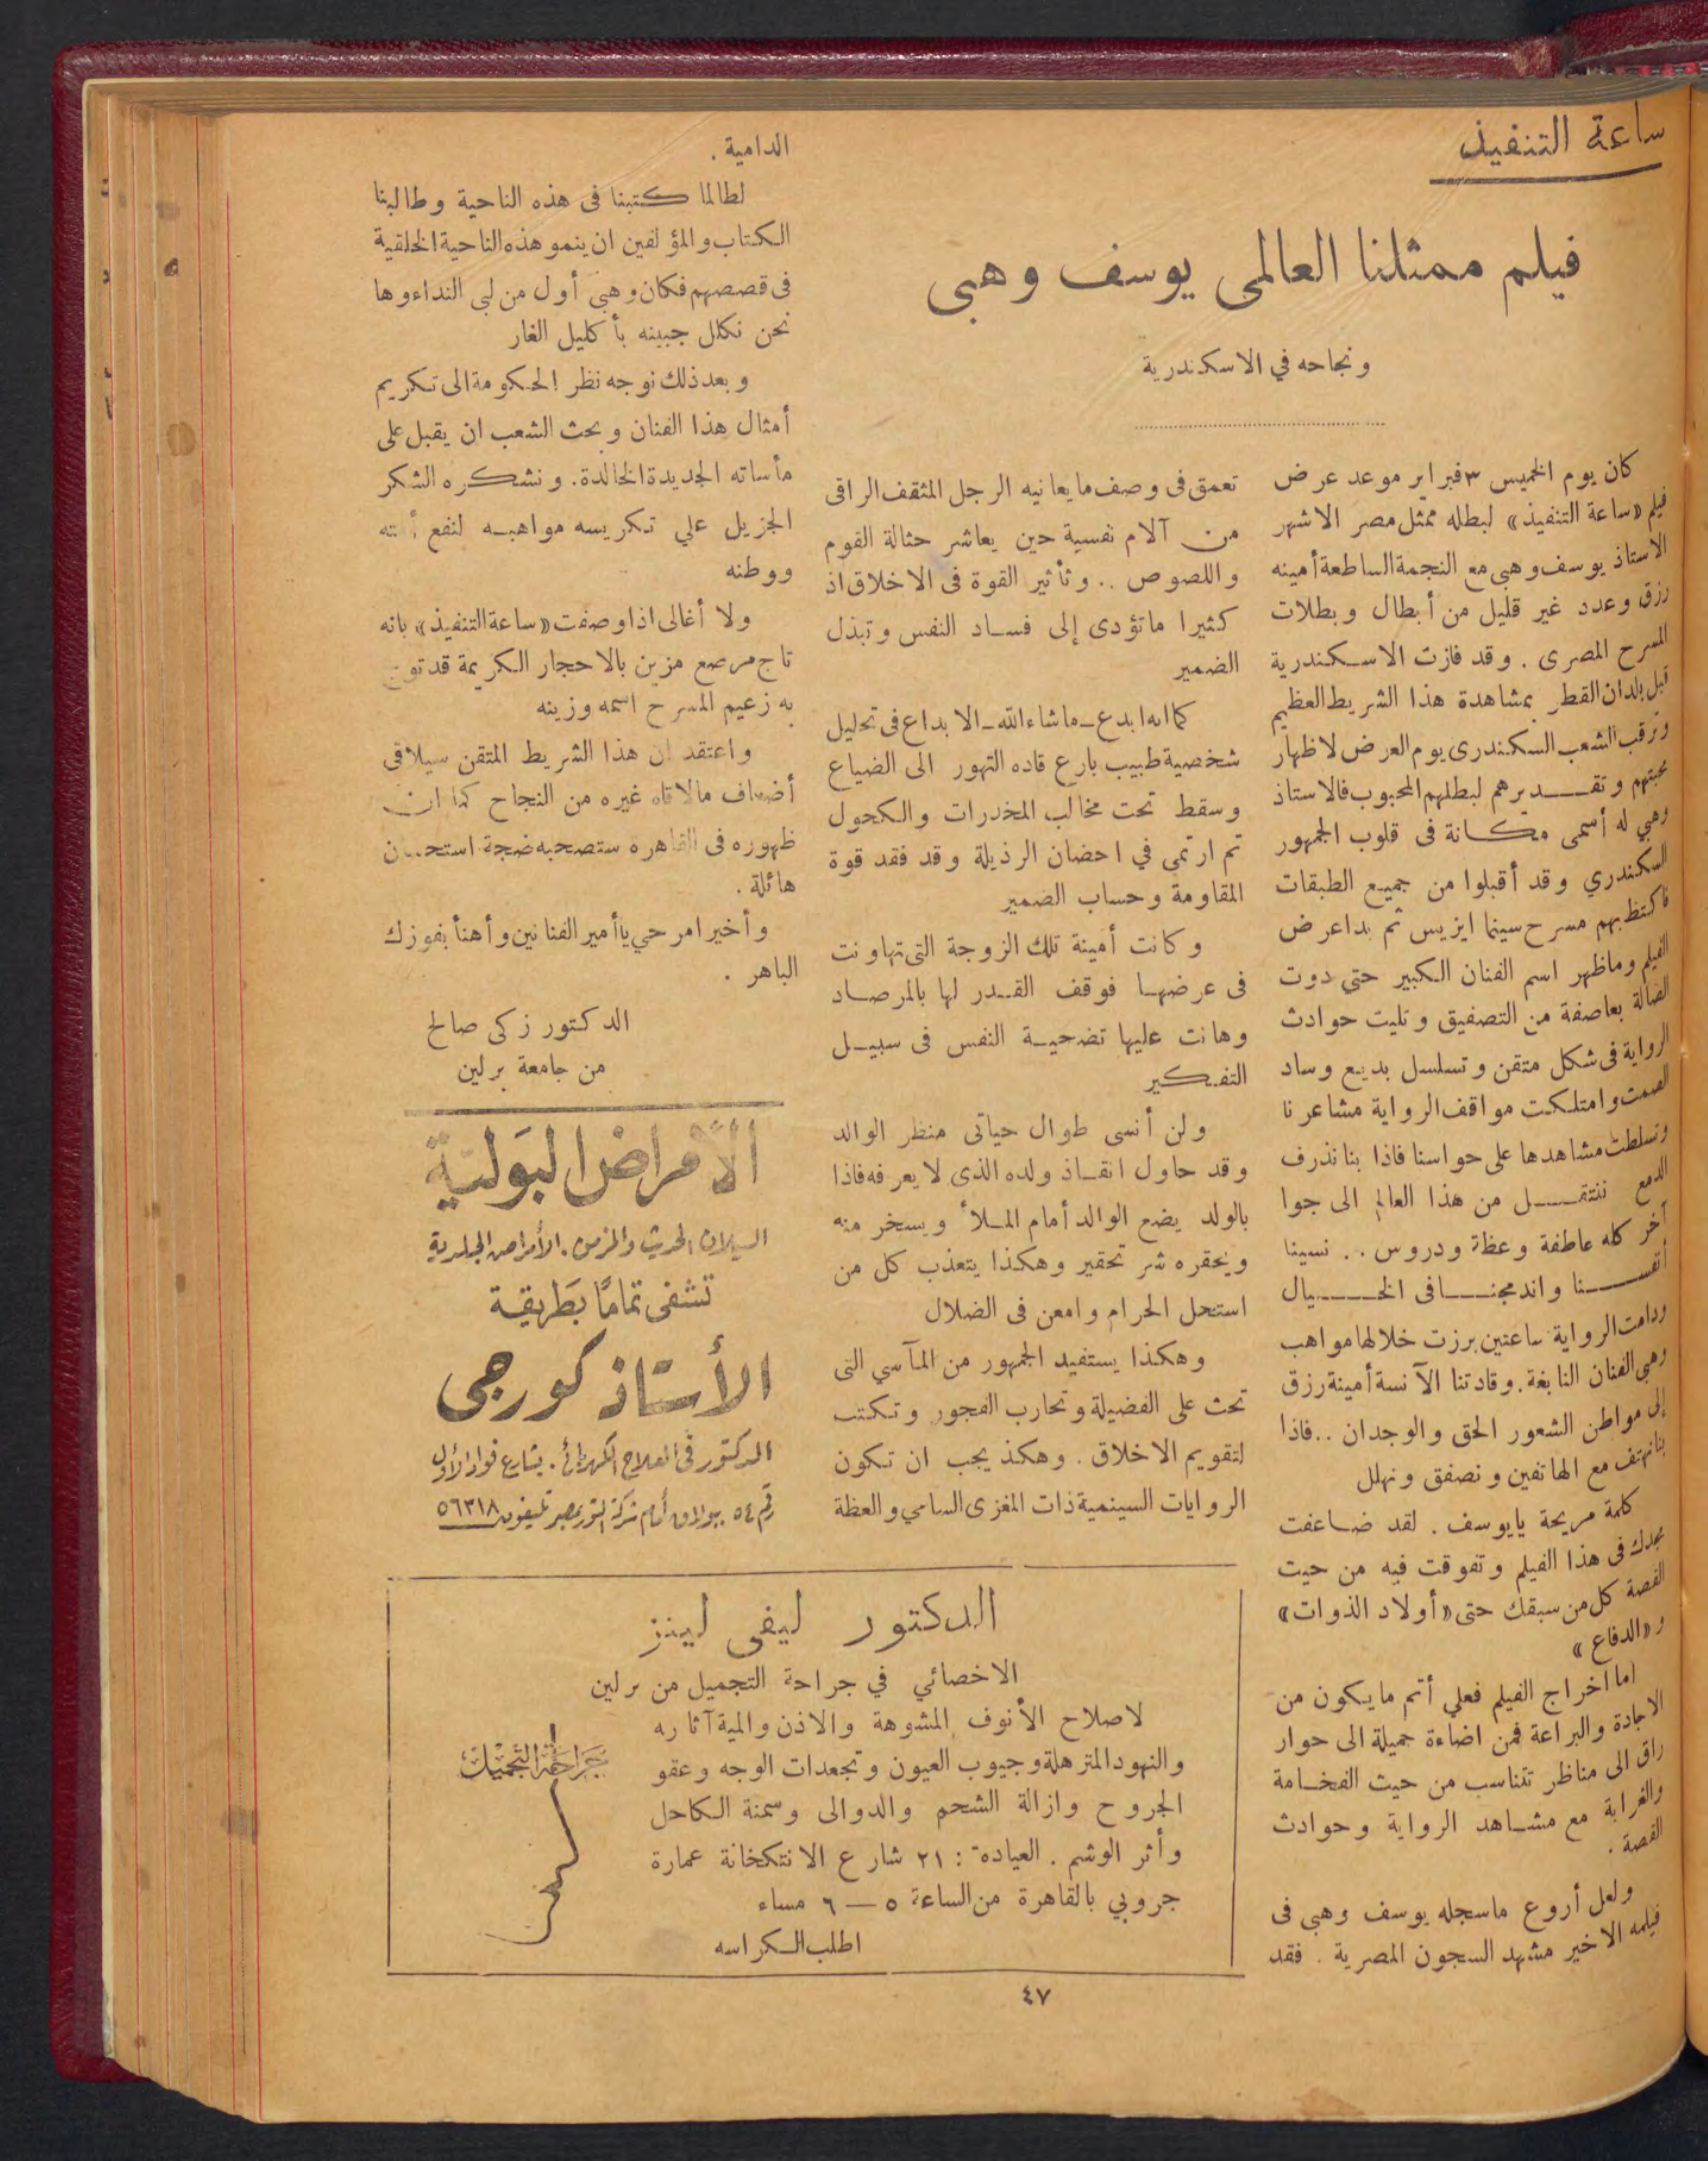 ساعة التنفيذ
فيلم ممثلنا العالمى يوسف وهبى
ونجاحه في الاسكندرية
كان يوم الخميس ٣ فبراير موعد عرض
فيلم «ساعة التنفيذ» لبطله ممثل مصر الاشهر
الاستاذ يوسف وهبى مع النجمة الساطعة أمينه
رزق وعدد غير قليل من أبطال وبطلات
المسرح المصرى . وقد فازت الاسكندرية
قبل بلدان القطر بمشاهدة هذا الشريط العظيم
وترقب الشعب السكندرى يوم العرض لاظهار
محبتهم وتقديرهم لبطلهم المحبوب فالاستاذ
وهبي له أسمى مكانة فى قلوب الجمهور
السكندري وقد أقبلوا من جميع الطبقات
فاكتظ بهم مسرح سينما ايزيس ثم بدا عرض
الفيلم وماظهر اسم الفنان الكبير حتي دوت
الصالة بعاصفة من التصفيق وتليت حوادث
الرواية فى شكل متقن وتسلسل بديع وساد
الصمت وامتلكت مواقف الرواية مشاعرنا
وتسلطت مشاهدها على حواسنا فاذا بنا نذرف
الدمع ننتقل من هذا العالم الى جوا
آخر كله عاطفة وعظة ودروس .. نسينا
أنفسنا واندمجنا فى الخيال
ودامت الرواية ساعتين برزت خلالها مواهب
وهبى الفنان النابغة . وقادتنا الآنسة أمينة رزق
إلى مواطن الشعور الحق والوجدان .. فاذا
بنا نهتف مع الهاتفين ونصفق ونهلل
كلمة مريحة يايوسف . لقد ضاعفت
مجدك فى هذا الفيلم وتفوقت فيه من حيث
القصة كل من سبقك حتى «أولاد الذوات»
و«الدفاع»
اما اخراج الفيلم فعلي أتم ما يكون من
الاجادة والبراعة فمن اضاءة جميلة الى حوار
راق الى مناظر تتناسب من حيث الفخامة
والغرابة مع مشاهد الرواية وحوادث
القصة .
ولعل أروع ماسجله يوسف وهبى فى
فيلمه الاخير مشهد السجون المصرية . فقد
تعمق فى وصف مايعانيه الرجل المثقف الراقى
من آلام نفسية حين يعاشر حثالة القوم
واللصوص .. وتأثير القوة فى الاخلاق اذ
كثيرا ماتؤدى إلى فساد النفس وتبذل
الضمير
كما انه ابدع ــ ماشاء الله ــ الابداع فى تحليل
شخصية طبيب بارع قاده التهور الى الضياع
وسقط تحت مخالب المخدرات والكحول
ثم ارتمى في احضان الرذيلة وقد فقد قوة
المقاومة وحساب الضمير
وكانت أمينة تلك الزوجة التى تهاونت
فى عرضها فوقف القدر لها بالمرصاد
وهانت عليها تضحية النفس فى سبيل
التفكير
ولن أنسى طوال حياتى منظر الوالد
وقد حاول انقاذ ولده الذى لايعرفه فاذا
بالولد يضع الوالد أمام الملأ ويسخر منه
ويحقره شر تحقير وهكذا يتعذب كل من
استحل الحرام وامعن فى الضلال
وهكذا يستفيد الجمهور من المآسي التى
تحث على الفضيلة وتحارب الفجور وتكتب
لتقويم الاخلاق . وهكذ يجب ان تكون
الروايات السينمية ذات المغزى السامي والعظة
الدامية .
لطالما كتبنا فى هذه الناحية وطالبنا
الكتاب والمؤلفين ان ينمو هذه الناحية الخلقية
فى قصصهم فكان وهبى أول من لبى النداء وها
نحن نكلل جبينه بأكليل الغار
وبعد ذلك نوجه نظر الحكومة الى تكريم
أمثال هذا الفنان ونحث الشعب ان يقبل على
مأساته الجديدة الخالدة . ونشكره الشكر
الجزيل علي تكريسه مواهبه لنفع أمته
ووطنه
ولا أغالى اذا وصفت «ساعة التنفيذ» بانه
تاج مرصع مزين بالاحجار الكريمة قد توج
به زعيم المسرح اسمه وزينه
واعتقد ان هذا الشريط المتقن سيلاقى
أضعاف مالاقاه غيره من النجاح كما ان
ظهوره فى القاهرة ستصحبه ضجة استحسان
هائلة .
وأخيرا مرحي يا أمير الفنانين وأهنأ بفوزك
الباهر .
الدكتور زكى صالح
من جامعة برلين
الأمراض البولية
السيلان الحديث والمزمن . الأمراض الجلدية
تشفى تماما بطريقة
الأستاذ كورجى
الدكتور فى العلاج الكهربائى . بشارع فواد الأول
رقم ٥٤ ببولاق أمام شركة النور بمصر تليفون ٥٦٣١٨
الدكتور ليفى لينز
الاخصائي في جراحة التجميل من برلين
لاصلاح الأنوف المشوهة والاذن والمية آثاره
والنهود المترهلة وجيوب العيون وتجعدات الوجه وعقو
الجروح وازالة الشحم والدوالى وسمنة الكاحل
وأثر الوشم . العيادة : ٢١ شارع الانتكخانة عمارة
جروبي بالقاهرة من الساعة ٥ ــ ٦ مساء
اطلب الكراسه
جراحة التجميل
٤٧